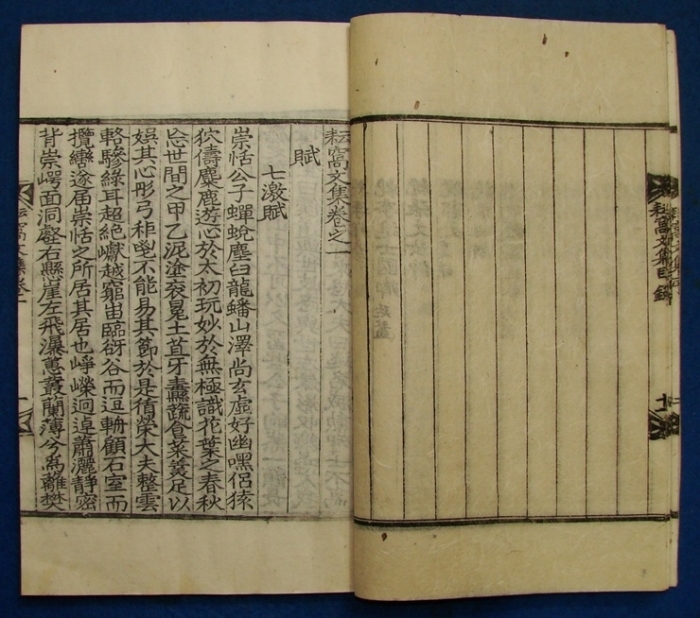 耘窩文集目錄
十一
耘窩文集卷之一
賦
七激賦
崇恬公子蟬蛻塵臼龍蟠山澤尚玄虛好幽嘿侶猿
狖儔麋鹿遊心於太初玩妙於無極識花葉之春秋
忘世間之甲乙泥塗衮冕土苴牙纛蔬食菜羹足以
娛其心彤弓秬鬯不能易其節於是循榮大夫整雲
輅驂綠耳超絶巘越窮岫臨谺谷而逗輈顧石室而
攬轡遂届崇恬之所居其居也崢嶸迥逴蕭灑静密
背崇崿面洞壑右懸崖左飛瀑蕙叢蘭薄兮爲離樊